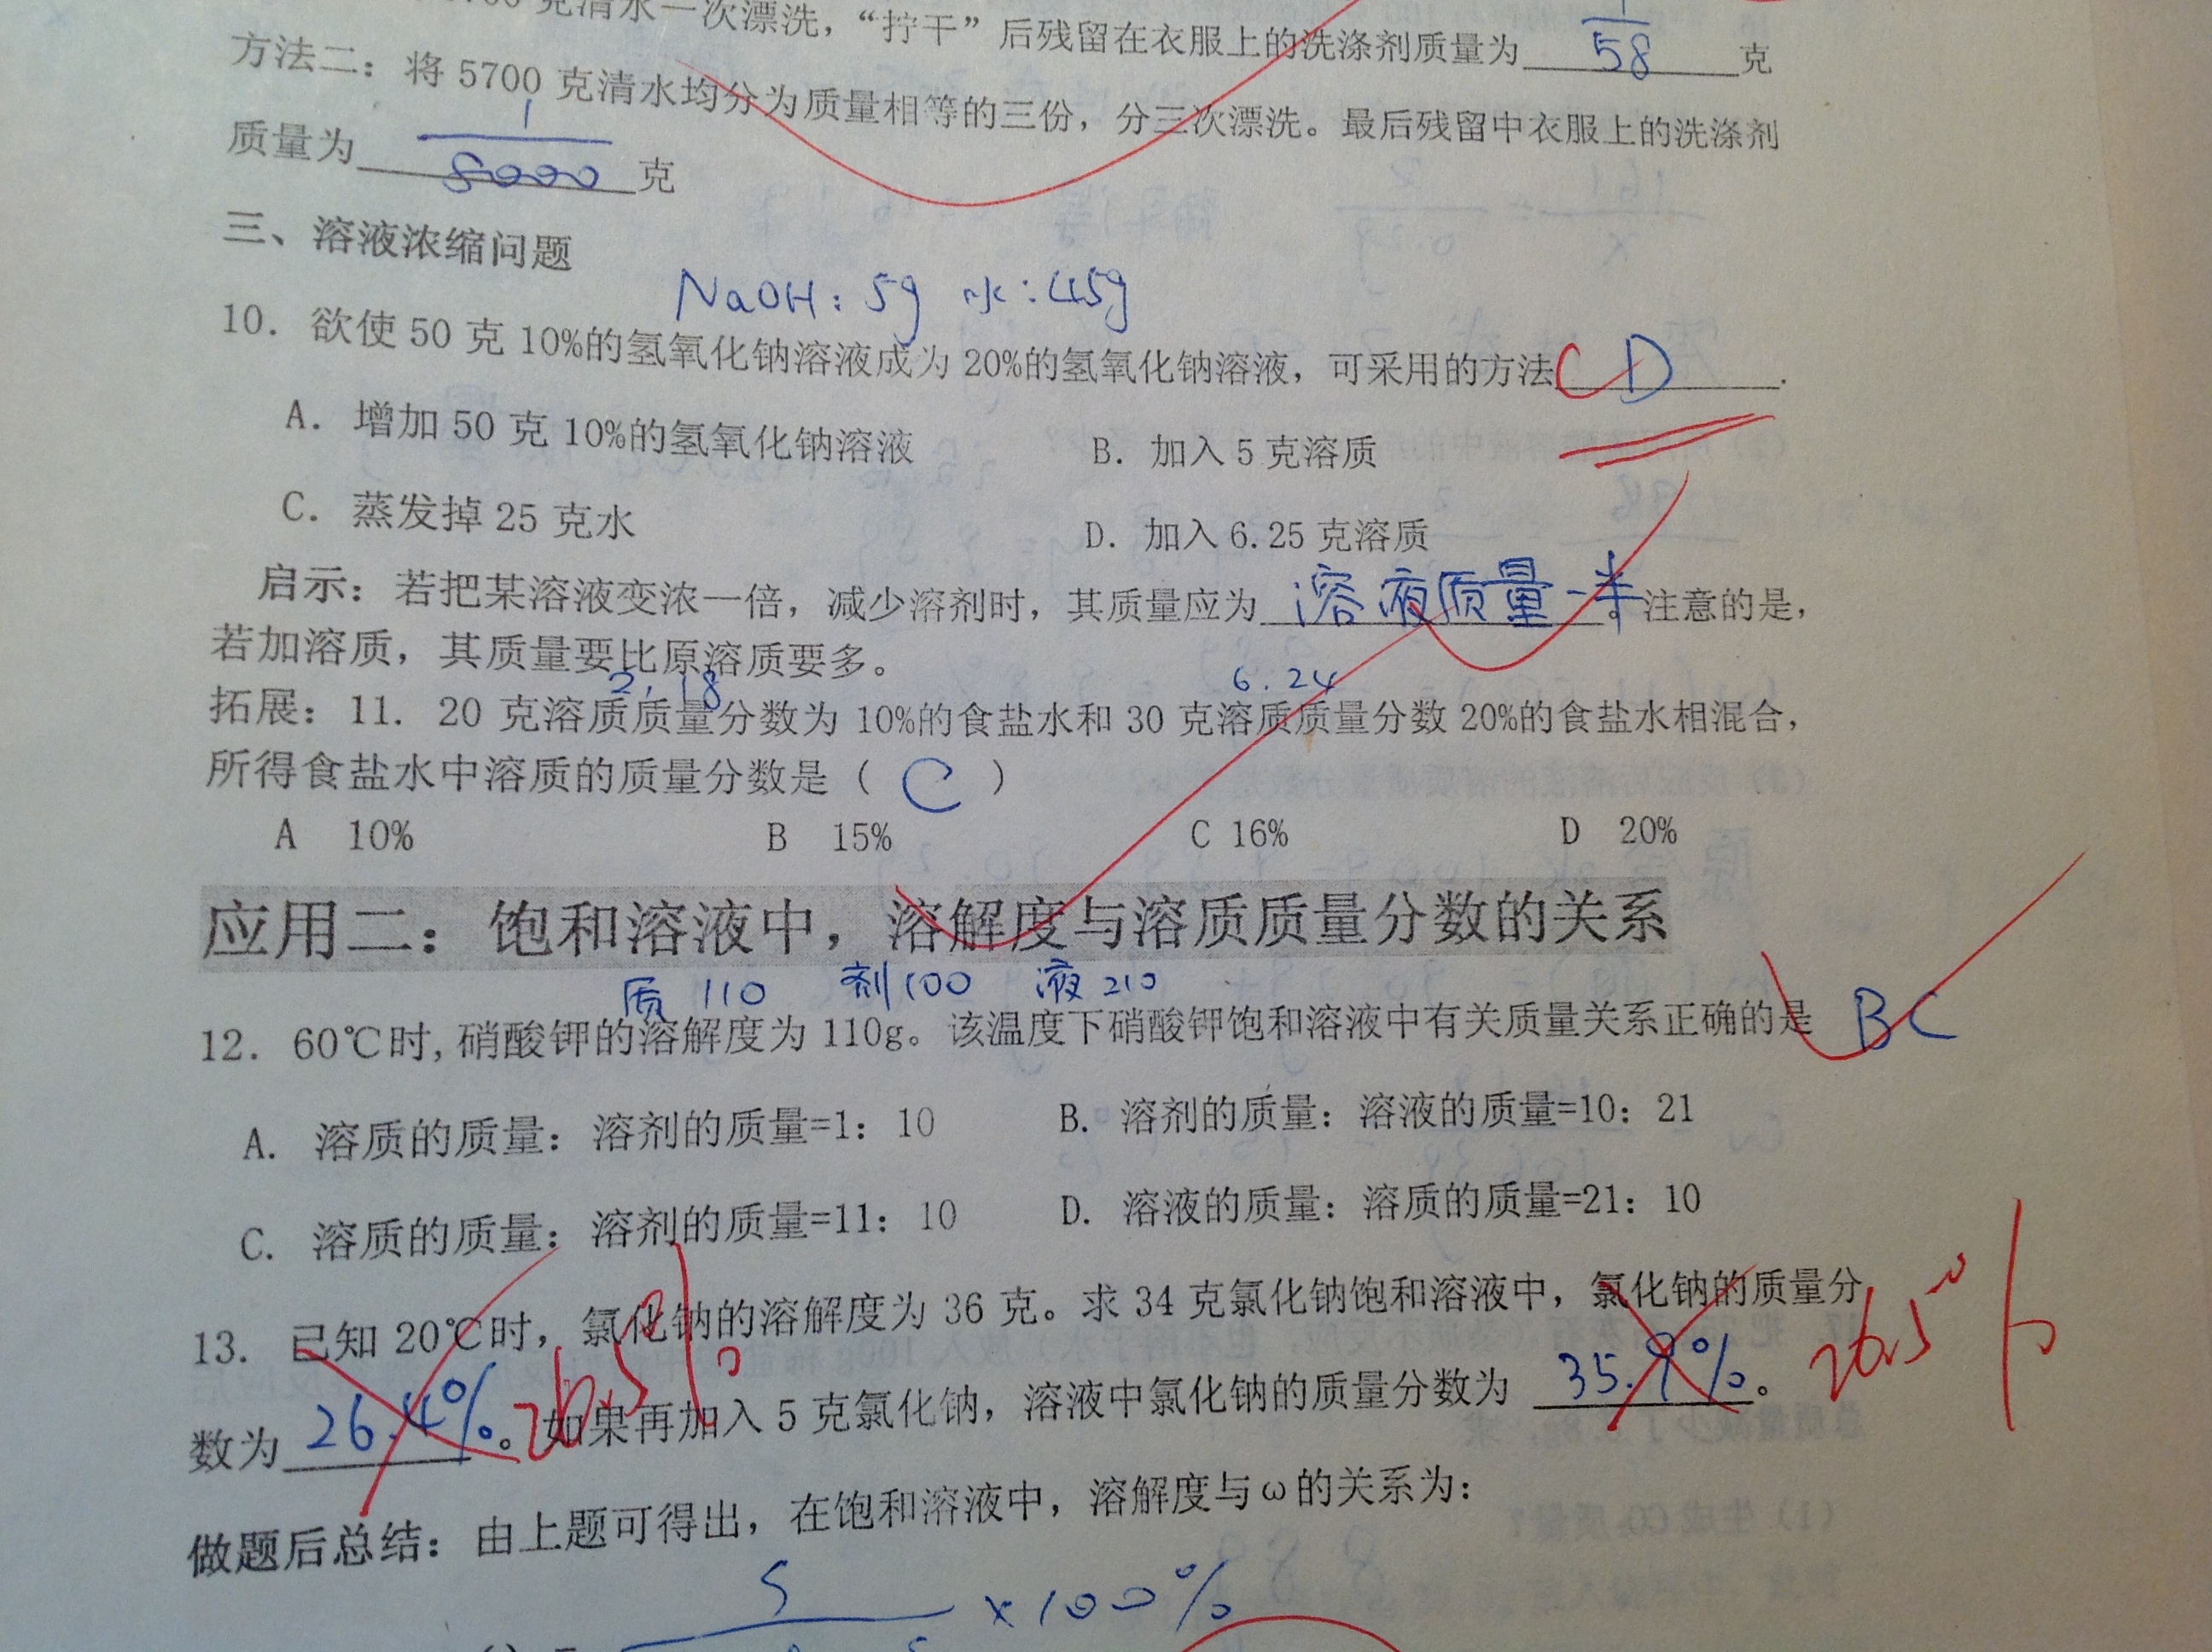 克清水一次漂洗，“拧干”后残留在衣服上的洗涤剂质量为 1/58 克
方法二：将 5700 克清水均分为质量相等的三份，分三次漂洗。最后残留中衣服上的洗涤剂
质量为 1/8000 克
三、溶液浓缩问题
NaOH：5g 水：45g
10．欲使 50 克 10%的氢氧化钠溶液成为 20%的氢氧化钠溶液，可采用的方法 CD .
A．增加 50 克 10%的氢氧化钠溶液 B．加入 5 克溶质
C．蒸发掉 25 克水 D．加入 6.25 克溶质
启示：若把某溶液变浓一倍，减少溶剂时，其质量应为 溶液质量一半 。注意的是，
若加溶质，其质量要比原溶质要多。
2，18 6．24
拓展：11． 20 克溶质质量分数为 10%的食盐水和 30 克溶质质量分数 20%的食盐水相混合，
所得食盐水中溶质的质量分数是（ C ）
A 10% B 15% C 16% D 20%
应用二：饱和溶液中，溶解度与溶质质量分数的关系
质 110 剂100 液 210
12．60℃时，硝酸钾的溶解度为 110g。该温度下硝酸钾饱和溶液中有关质量关系正确的是 BC
A．溶质的质量：溶剂的质量=1：10 B．溶剂的质量：溶液的质量=10：21
C．溶质的质量：溶剂的质量=11：10 D．溶液的质量：溶质的质量=21：10
13．已知 20℃时，氯化钠的溶解度为 36 克。求 34 克氯化钠饱和溶液中，氯化钠的质量分
数为 26.4% 。26.5% 如果再加入 5 克氯化钠，溶液中氯化钠的质量分数为 35.9% 。 26.5%
做题后总结：由上题可得出，在饱和溶液中，溶解度与ω的关系为：
S ×100%